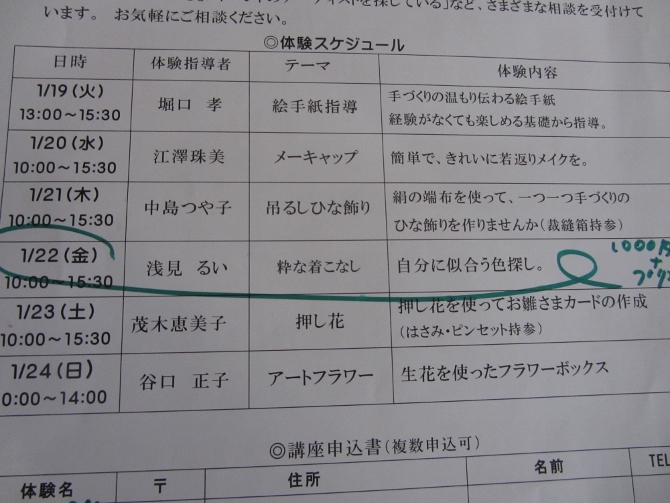 を探している」など、さまざまな相談を受付けて
います。 お気軽にご相談ください。
◎体験スケジュール
日時 体験指導者 テーマ 体験内容
1/19(火)
13:00～15:30
堀口 孝 絵手紙指導
手づくりの温もり伝わる絵手紙
経験がなくても楽しめる基礎から指導。
1/20(水)
10:00～15:30
江澤珠美 メーキャップ 簡単で、きれいに若返りメイクを。
1/21(木)
10:00～15:30
中島つや子 吊るしひな飾り
絹の端布を使って、一つ一つ手づくりの
ひな飾りを作りませんか(裁縫箱持参)
1/22(金)
10:00～15:30
浅見 るい 粋な着こなし 自分に似合う色探し。
1000円
+
1/23(土)
10:00～15:30
茂木恵美子 押し花
押し花を使ってお雛さまカードの作成
(はさみ・ピンセット持参)
1/24(日)
0:00～14:00
谷口 正子 アートフラワー 生花を使ったフラワーボックス
◎講座申込書(複数申込可)
体験名 〒 住所 名前 TEL